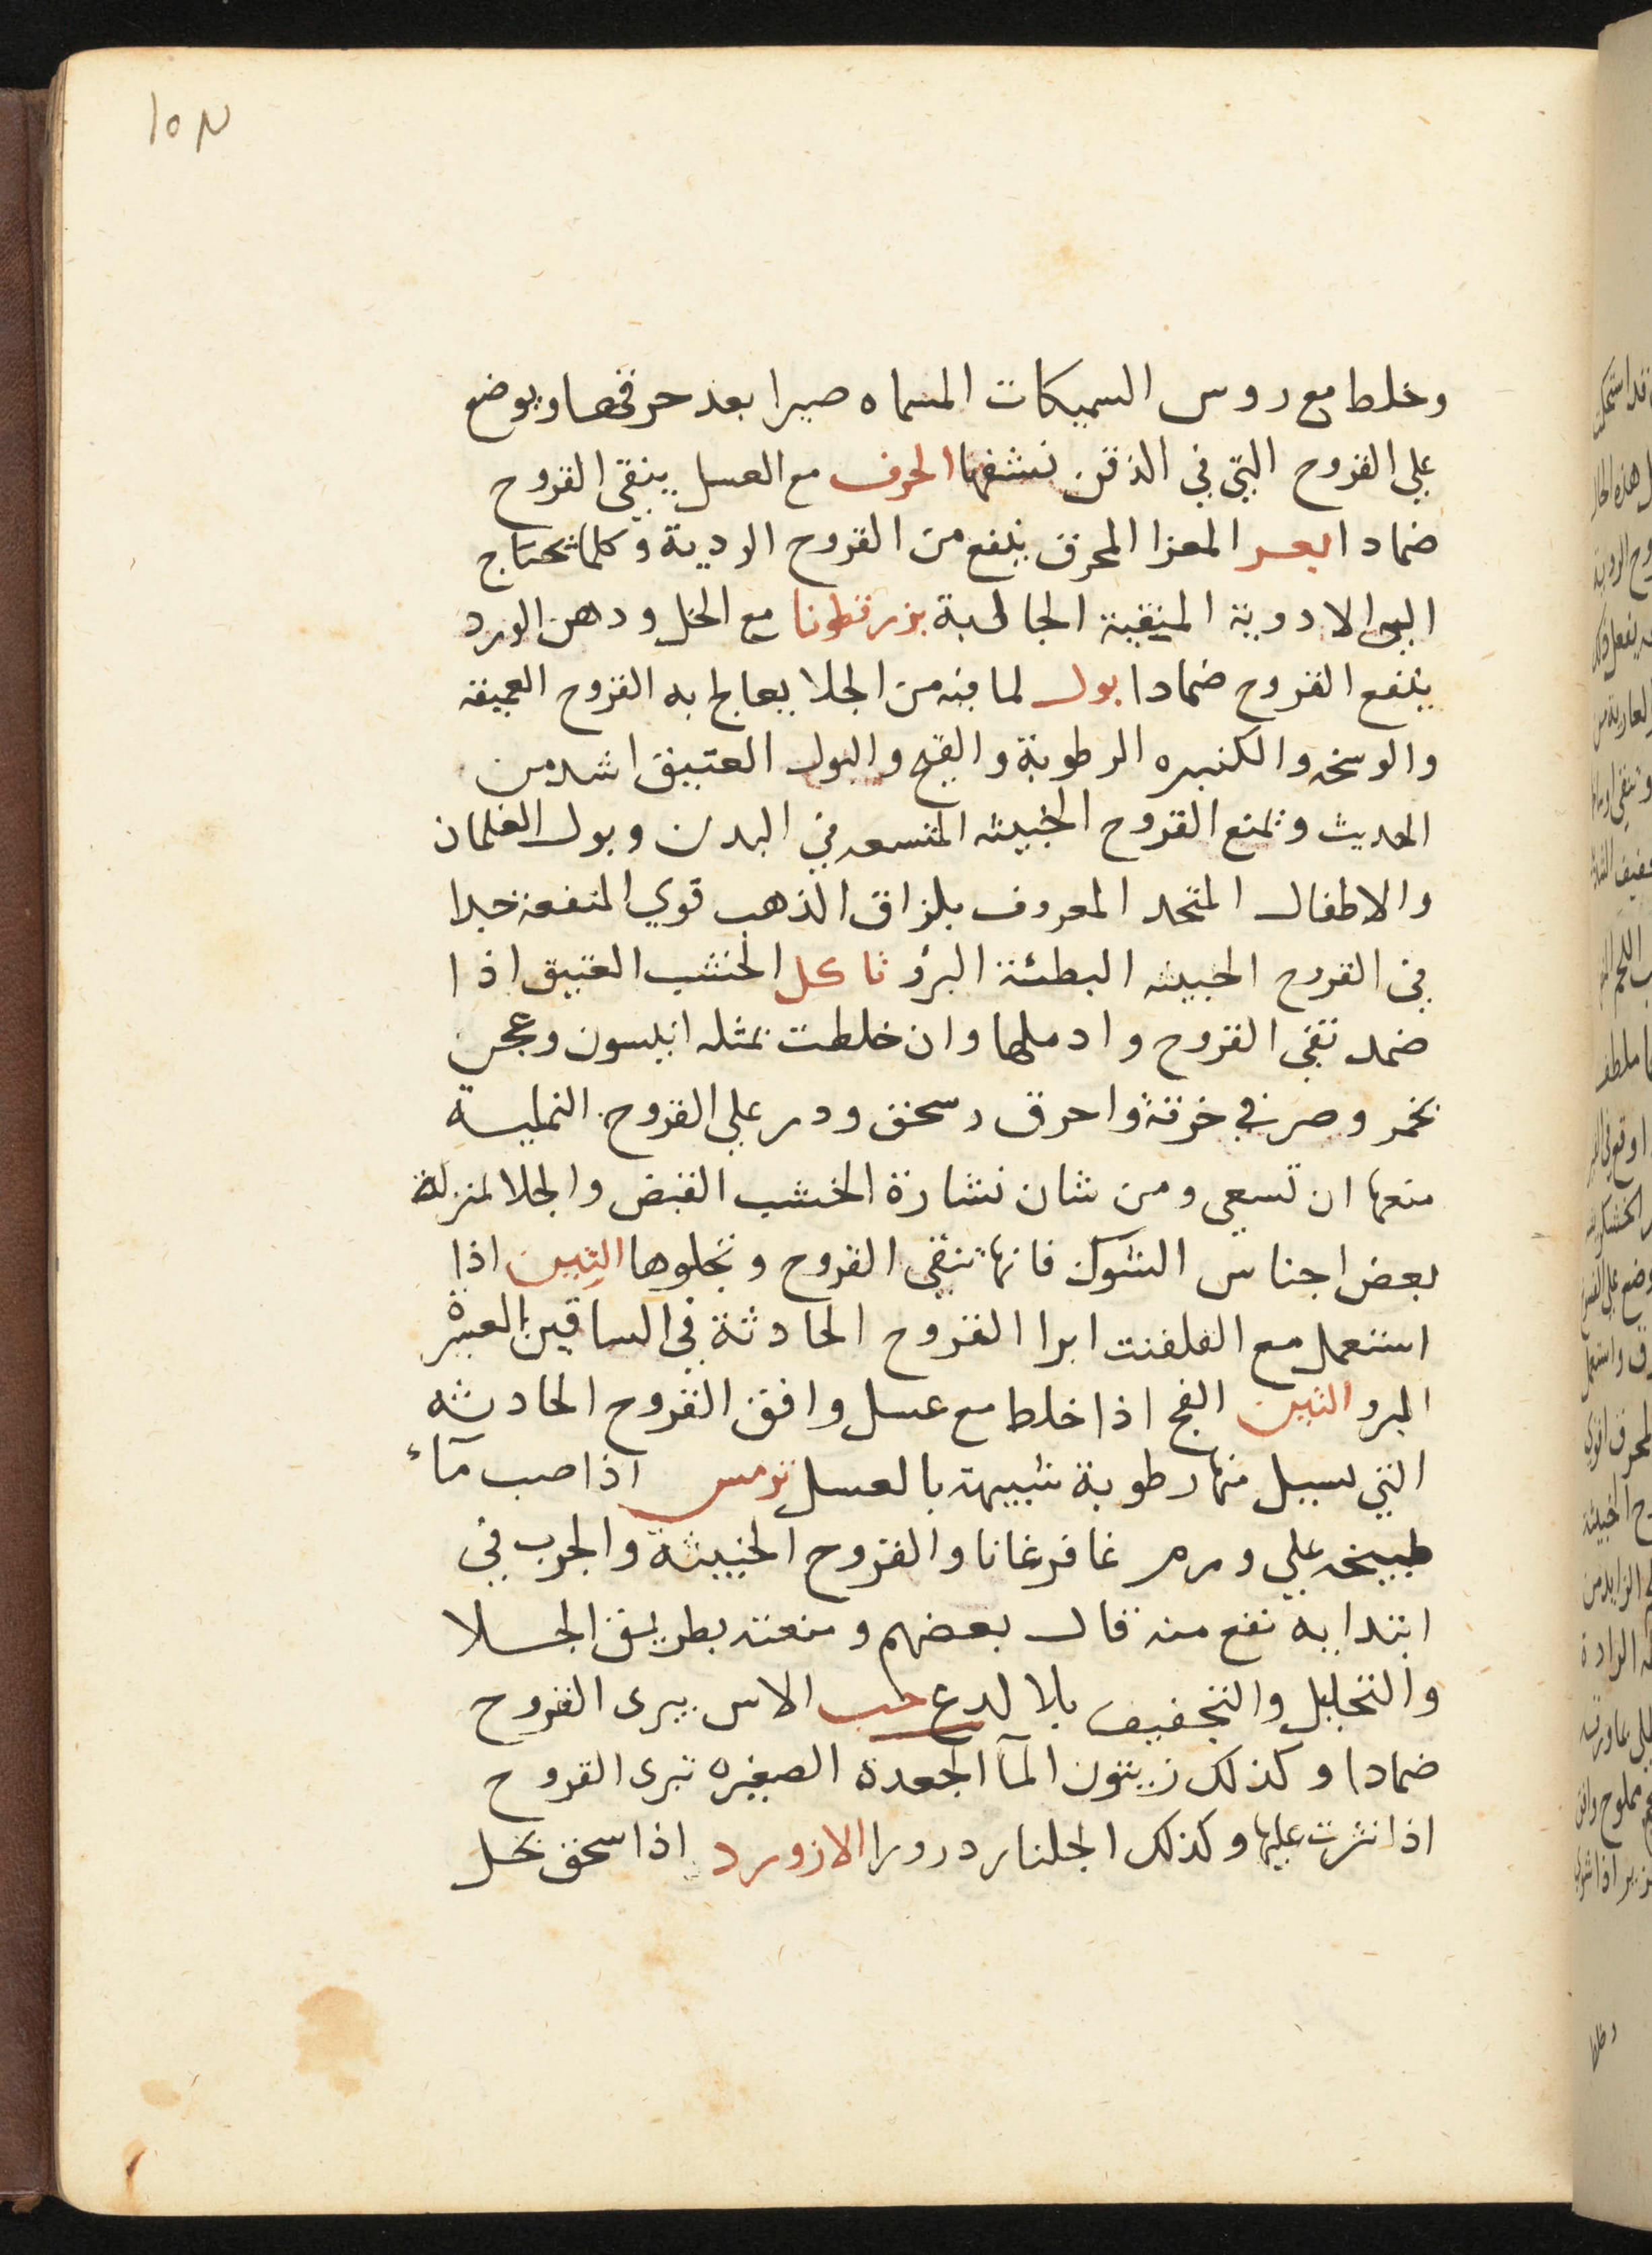 ١٥٣
وخلط مع روس السميكات المسماه صيرا بعد حرقها ويوضع
علي القروح التي في الذقن نشفها الحرف مع العسل ينقي القروح
ضمادا بعر المعزا المحرق ينفع من القروح الردية وكلما تحتاج
الي الادوية المنقية الجالية بزرقطونا مع الخل ودهن الورد
ينفع القروح ضمادا بول لما فيه من الجلا يعالج به القروح العميقة
والوسخه والكثيره الرطوبة والقيح والبول العتيق اشد من
الحديث ويمنع القروح الخبيثه المتسعه في البدن وبول الغلمان
والاطفال المتخد المعروف بلزاق الذهب قوي المنفعة جدا
في القروح الخبيثه البطئة البرؤ تاكل الخشب العتيق اذا
ضمد نقي القروح وادملها وان خلطت بمثله انيسون وعجن
بخمر وصر في خرقة واحرق وسحق ودر علي القروح النملية
منعها ان تسعي ومن شان نشارة الخشب القبض والجلا لمنزلة
بعض اجناس الشوك فانها تنقي القروح وتجلوها التين اذا
استعمل مع القلقنت ابرا القروح الحادثة في الساقين العسرة
البرو التين الفج اذا خلط مع عسل وافق القروح الحادثه
التي يسيل منها رطوبة شبيهة بالعسل ترمس اذا صب مآء
طبيخه علي ورم غافرغانا والقروح الخبيثة والجرب في
ابتدايه نفع منه قال بعضهم ومنعته بطريق الجلا
والتحليل والتجفيف بلا لدع حب الاس يبرى القروح
ضمادا وكذلك زيتون المآ الجعدة الصغيره تبرى القروح
اذا نثرت عليها وكذلك الجلنار درورا الازورد اذا سحق بخل